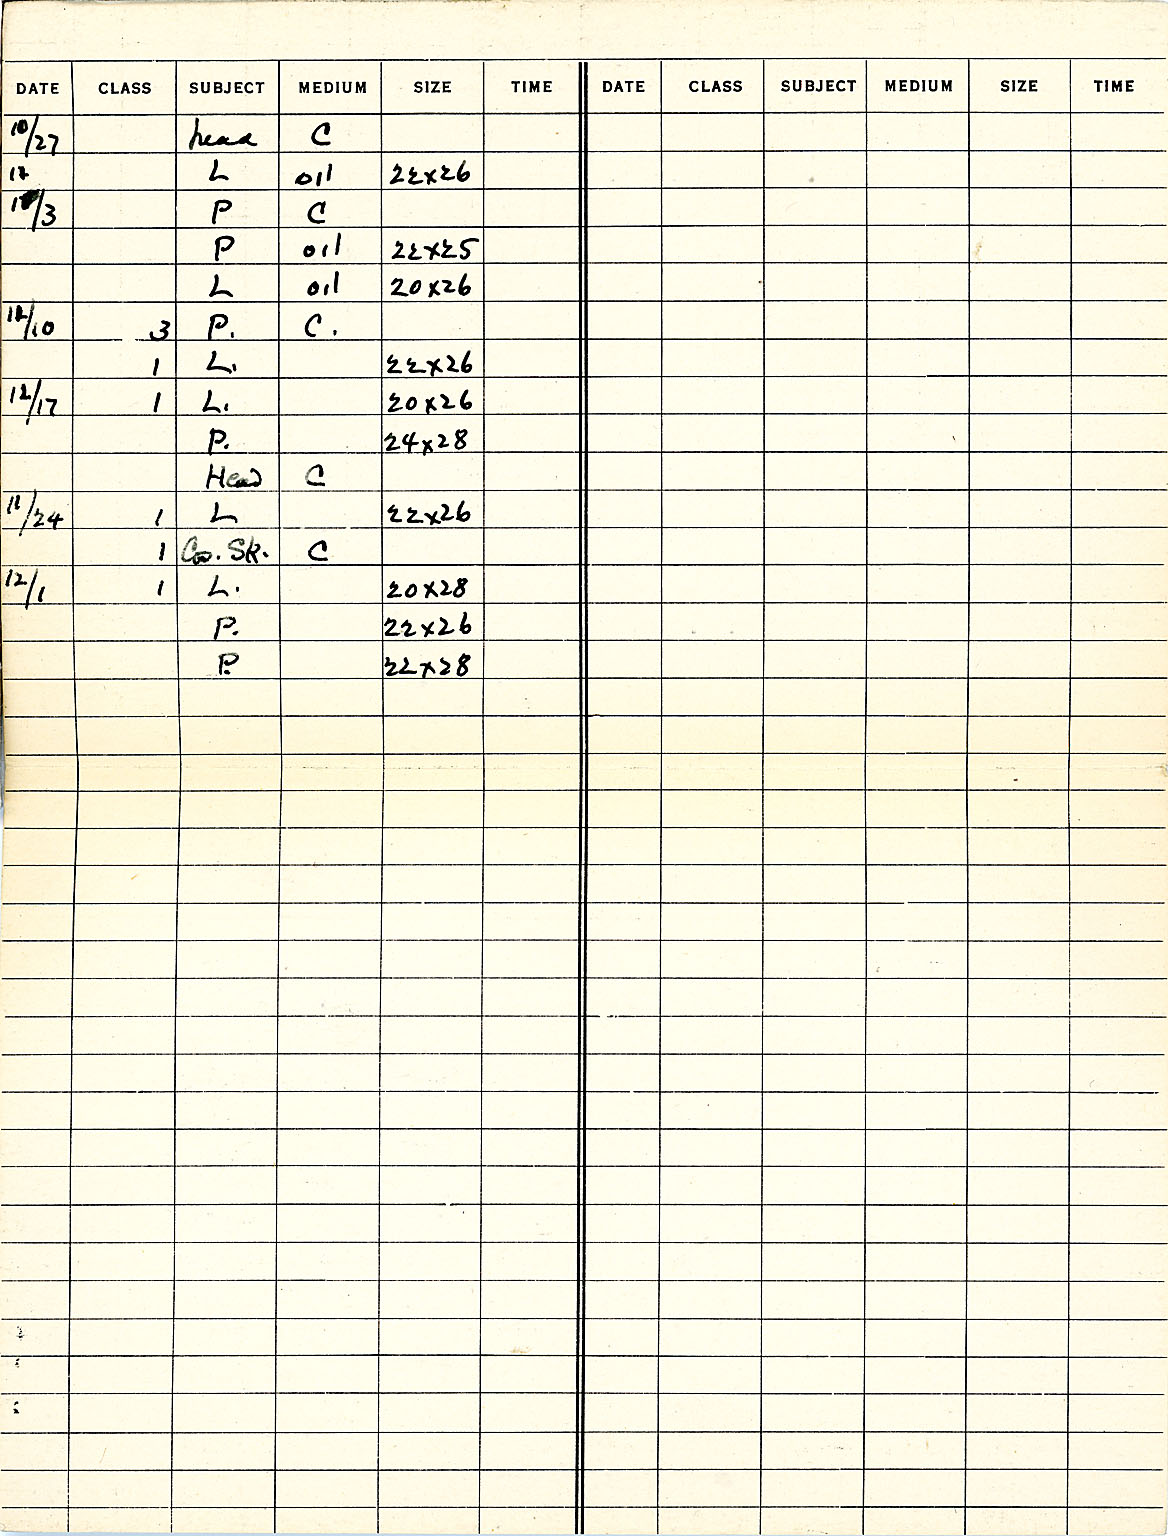 DATE CLASS SUBJECT MEDIUM SIZE TIME DATE CLASS SUBJECT MEDIUM SIZE TIME
10/27 head C
L oil 22x26
P C
P oil 22x25
L oil 20x26
12/10 3 P. C.
1 L. 22x26
12/17 1 L. 20x26
P. 24x28
Head C
11/24 1 L 22x26
1 Co. Sk. C
12/1 1 L. 20x28
P. 22x26
P. 22x28